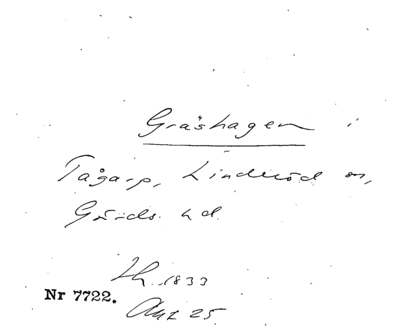 Gräshagen i
Tågarp, Linderöd sn,
Gärds hd.
Lh. 1833
Nr 7722.
Akt 25